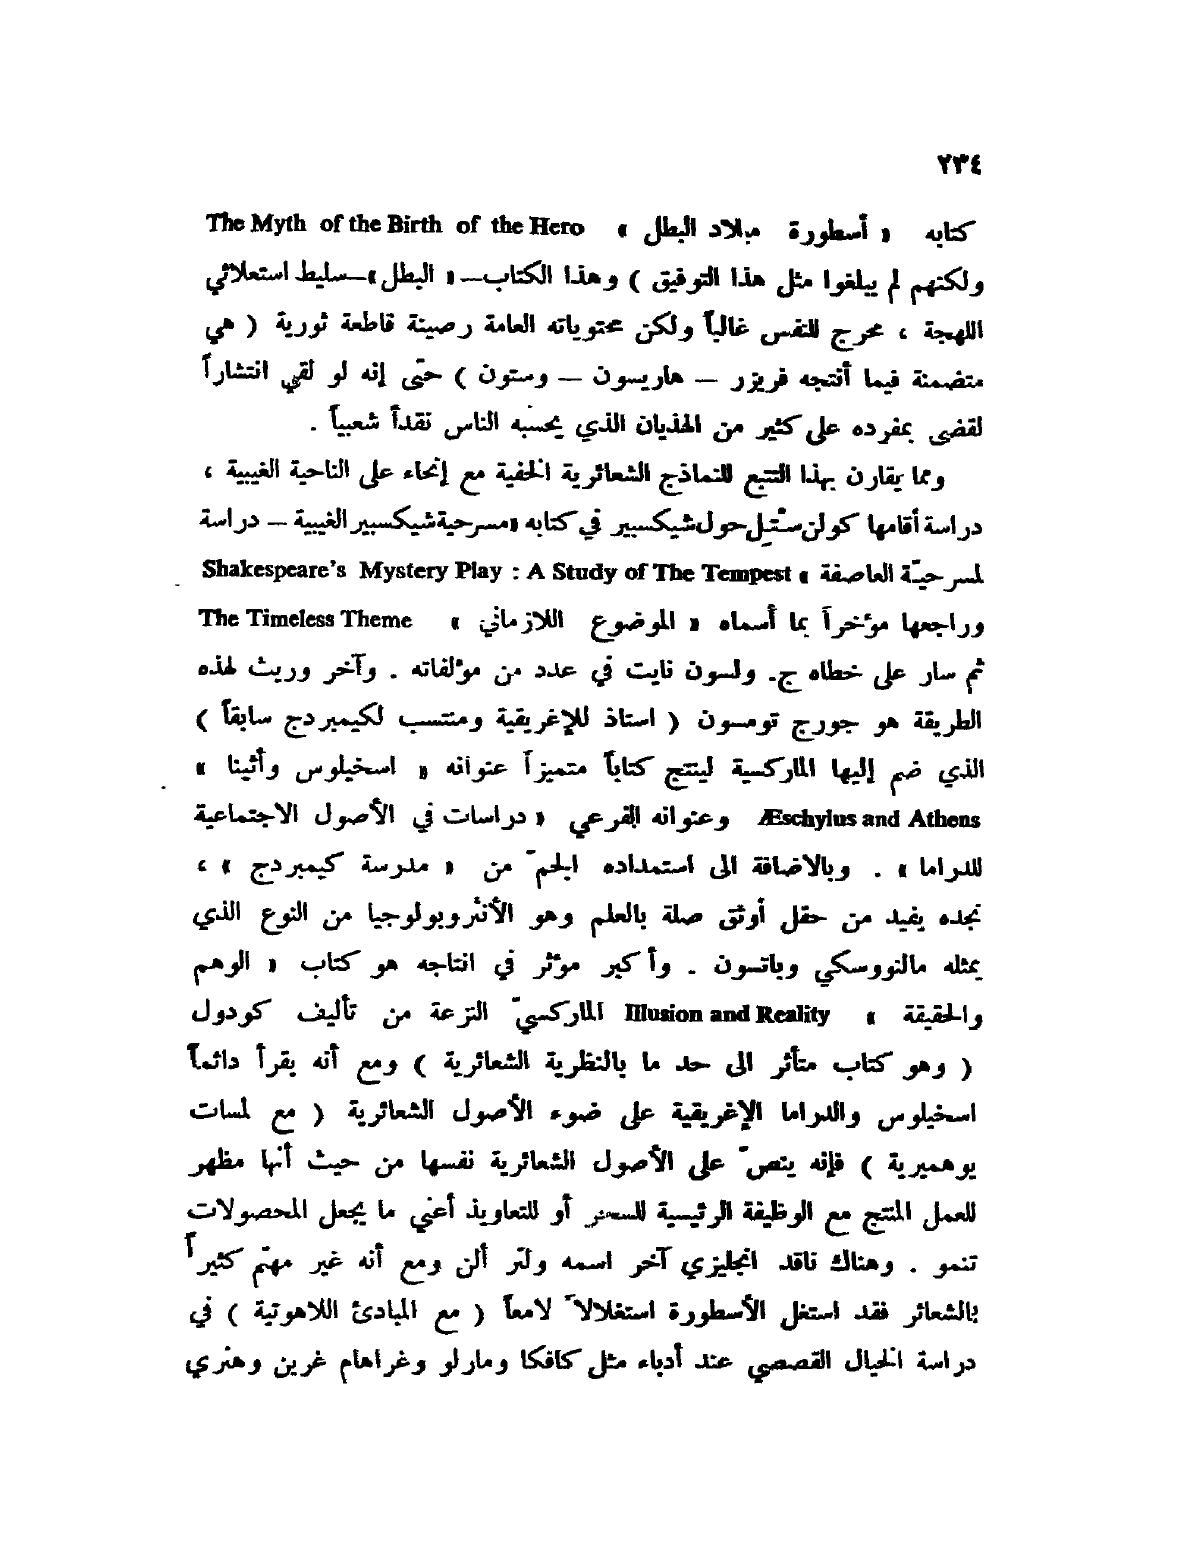 ٢٣٤
كتابه « أسطورة ميلاد البطل » The Myth of the Birth of the Hero
ولكنهم لم يبلغوا مثل هذا التوفيق ) وهذا الكتاب – « البطل » – سليط استعلائي
اللهجة ، محرج للنفس غالباً ولكن محتوياته العامة رصينة قاطعة ثورية ( هي
متضمنة فيما أنتجه فريزر – هاريسون – وستون ) حتّى إنه لو لقي انتشاراً
لقضى بمفرده على كثير من الهذيان الذي يحسبه الناس نقداً شعبياً .
ومما يقارن بهذا التتبع للنماذج الشعائرية الخفية مع إنحاء على الناحية الغيبية ،
دراسة أقامها كولن ستْيل حول شيكسبير في كتابه « مسرحية شيكسبير الغيبية – دراسة
لمسرحيّة العاصفة » Shakespeare's Mystery Play : A Study of The Tempest
وراجعها مؤخراً بما أسماه « الموضوع اللازماني » The Timeless Theme
ثم سار على خطاه ج. ولسون نايت في عدد من مؤلفاته . وآخر وريث لهذه
الطريقة هو جورج تومسون ( استاذ للإغريقية ومنتسب لكيمبردج سابقاً )
الذي ضم إليها الماركسية لينتج كتاباً متميزاً عنوانه « اسخيلوس وأثينا »
Æschylus and Athens وعنوانه الفرعي « دراسات في الأصول الاجتماعية
للدراما » . وبالاضافة الى استمداده الجمّ من « مدرسة كيمبردج » ،
نجده يفيد من حقل أوثق صلة بالعلم وهو الأنثروبولوجيا من النوع الذي
يمثله مالنووسكي وباتسون . وأكبر مؤثر في انتاجه هو كتاب « الوهم
والحقيقة » Illusion and Reality الماركسيّ النزعة من تأليف كودول
( وهو كتاب متأثر الى حد ما بالنظرية الشعائرية ) ومع أنه يقرأ دائماً
اسخيلوس والدراما الإغريقية على ضوء الأصول الشعائرية ( مع لمسات
يوهميرية ) فإنه ينصّ على الأصول الشعائرية نفسها من حيث أنها مظهر
للعمل المنتج مع الوظيفة الرئيسية للسحر أو للتعاويذ أعني ما يجعل المحصولات
تنمو . وهناك ناقد انجليزي آخر اسمه ولتر ألن ومع أنه غير مهتم كثيراً
بالشعائر فقد استغل الأسطورة استغلالاً لامعاً ( مع المبادئ اللاهوتية ) في
دراسة الخيال القصصي عند أدباء مثل كافكا ومارلو وغراهام غرين وهنري